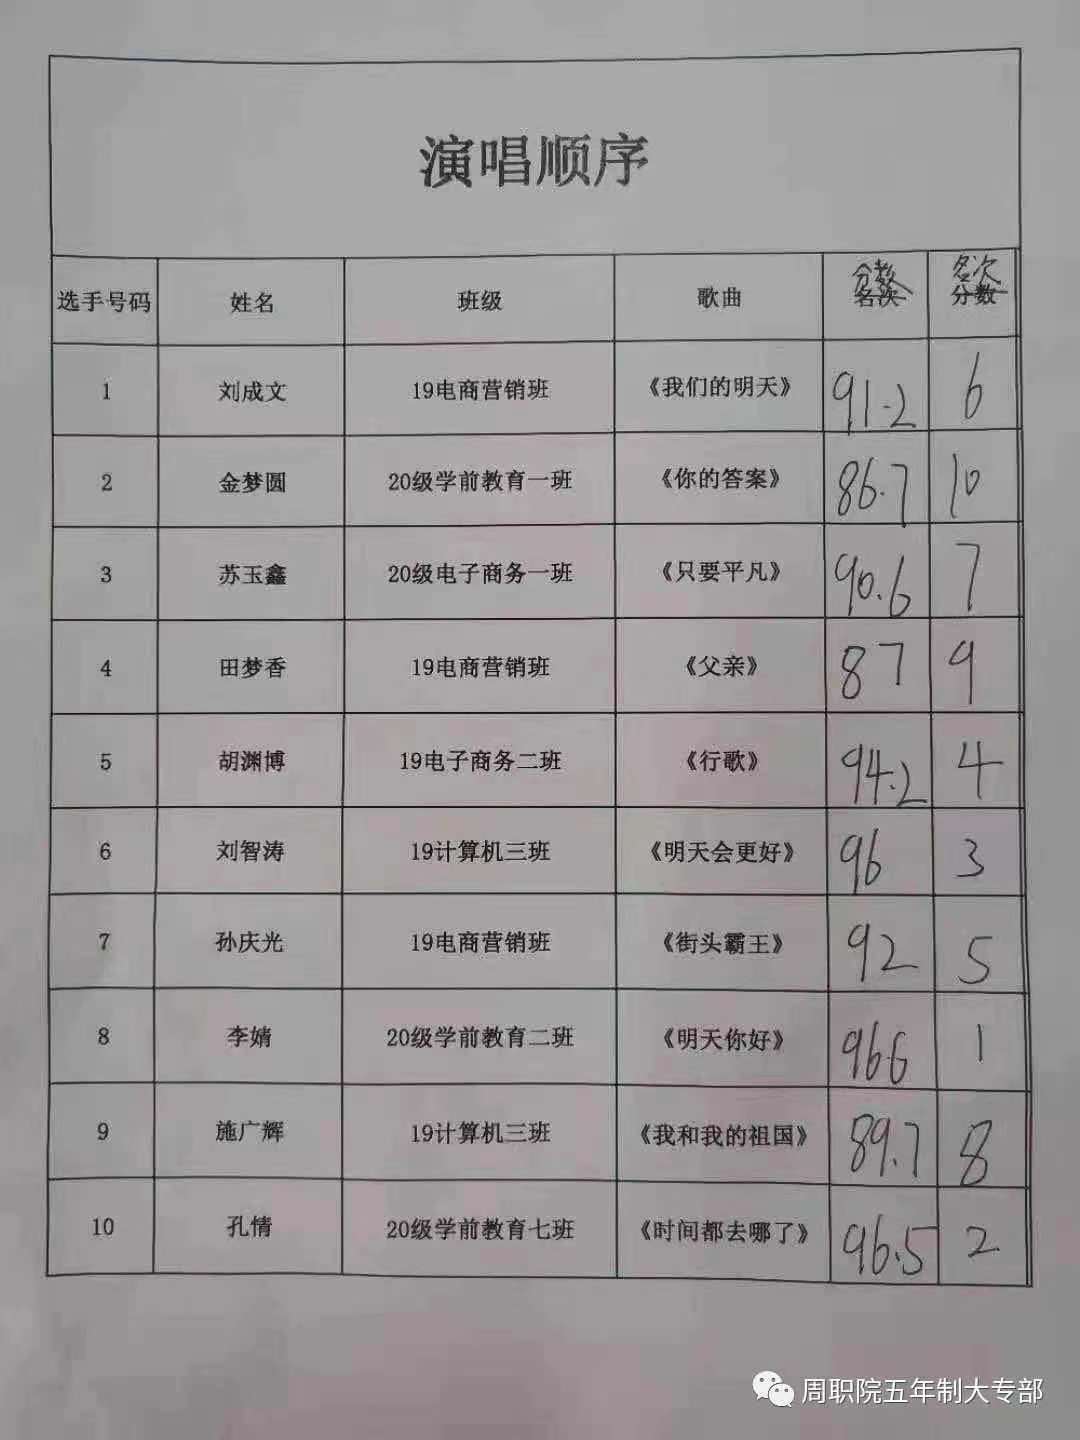 演唱顺序
选手号码 姓名 班级 歌曲 分数 名次
名次 分数
1 刘成文 19电商营销班 《我们的明天》 91.2 6
2 金梦圆 20级学前教育一班 《你的答案》 86.7 10
3 苏玉鑫 20级电子商务一班 《只要平凡》 90.6 7
4 田梦香 19电商营销班 《父亲》 87 9
5 胡渊博 19电子商务二班 《行歌》 94.2 4
6 刘智涛 19计算机三班 《明天会更好》 96 3
7 孙庆光 19电商营销班 《街头霸王》 92 5
8 李婧 20级学前教育二班 《明天你好》 966 1
9 施广辉 19计算机三班 《我和我的祖国》 89.7 8
10 孔情 20级学前教育七班 《时间都去哪了》 96.5 2
周职院五年制大专部